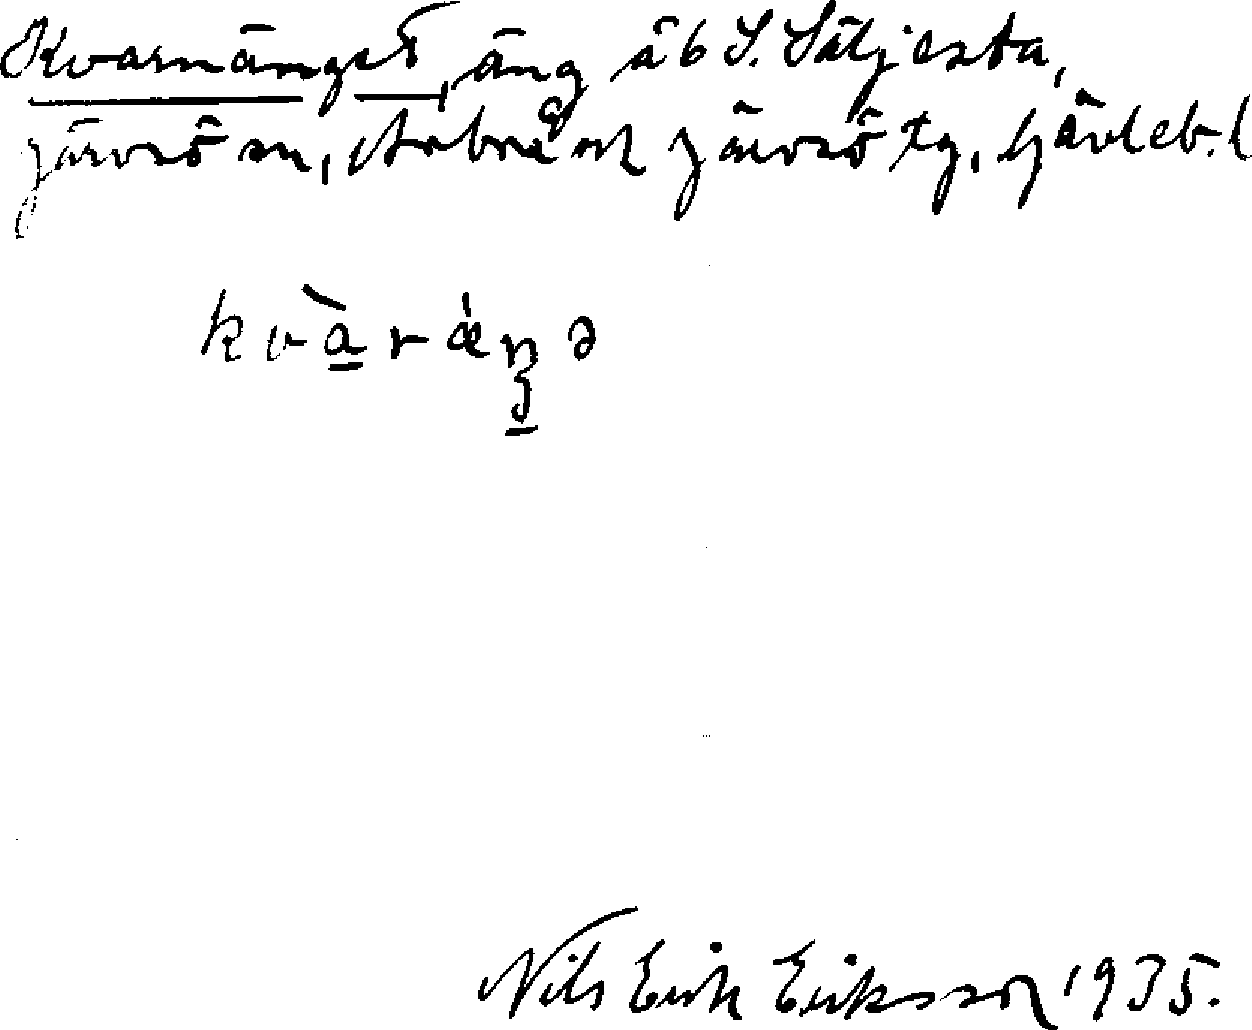 Kvarnänget, äng å b S. Säljesta,
Järvsö sn, Arbrå ok Järvsö tg, Gävleb. l
kvàrǽŋə
Nils Erik Eriksson 1935.